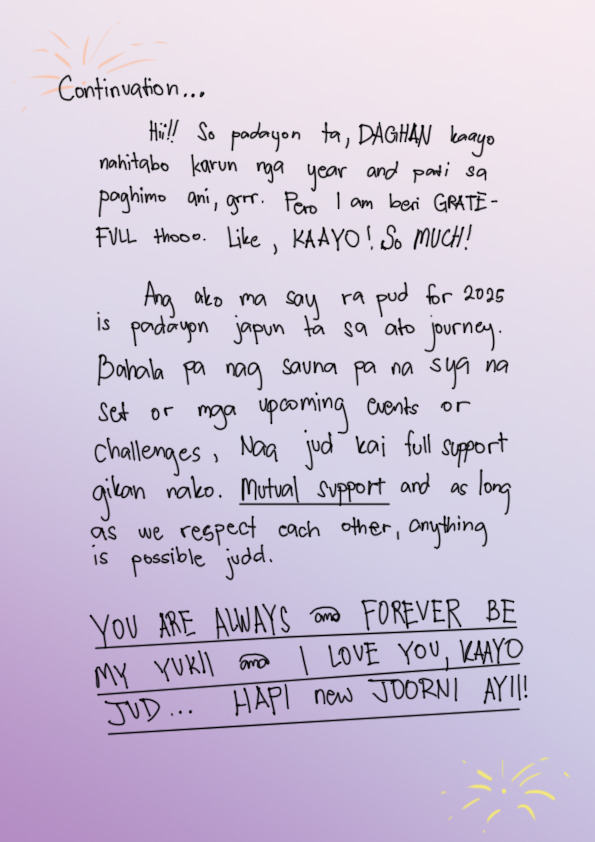 Continuation...
Hi!! So padayon ta, DAGHAN kaayo
nahitabo karun nga year and pati sa
paghimo ani, grr. Pero I am beri GRATE-
FULL thooo. Like, KAAYO! So MUCH!
Ang ako ma say ra pud for 2025
is padayon japun ta sa ato journey.
Bahala pa nag sauna pa na sya na
set or mga upcoming events or
challenges, Naa jud kai full support
gikan nako. Mutual support and as long
as we respect each other, anything
is possible judd.
YOU ARE ALWAYS and FOREVER BE
MY YUKII and I LOVE YOU, KAAYO
JUD... HAPI new JOORNI AYII!